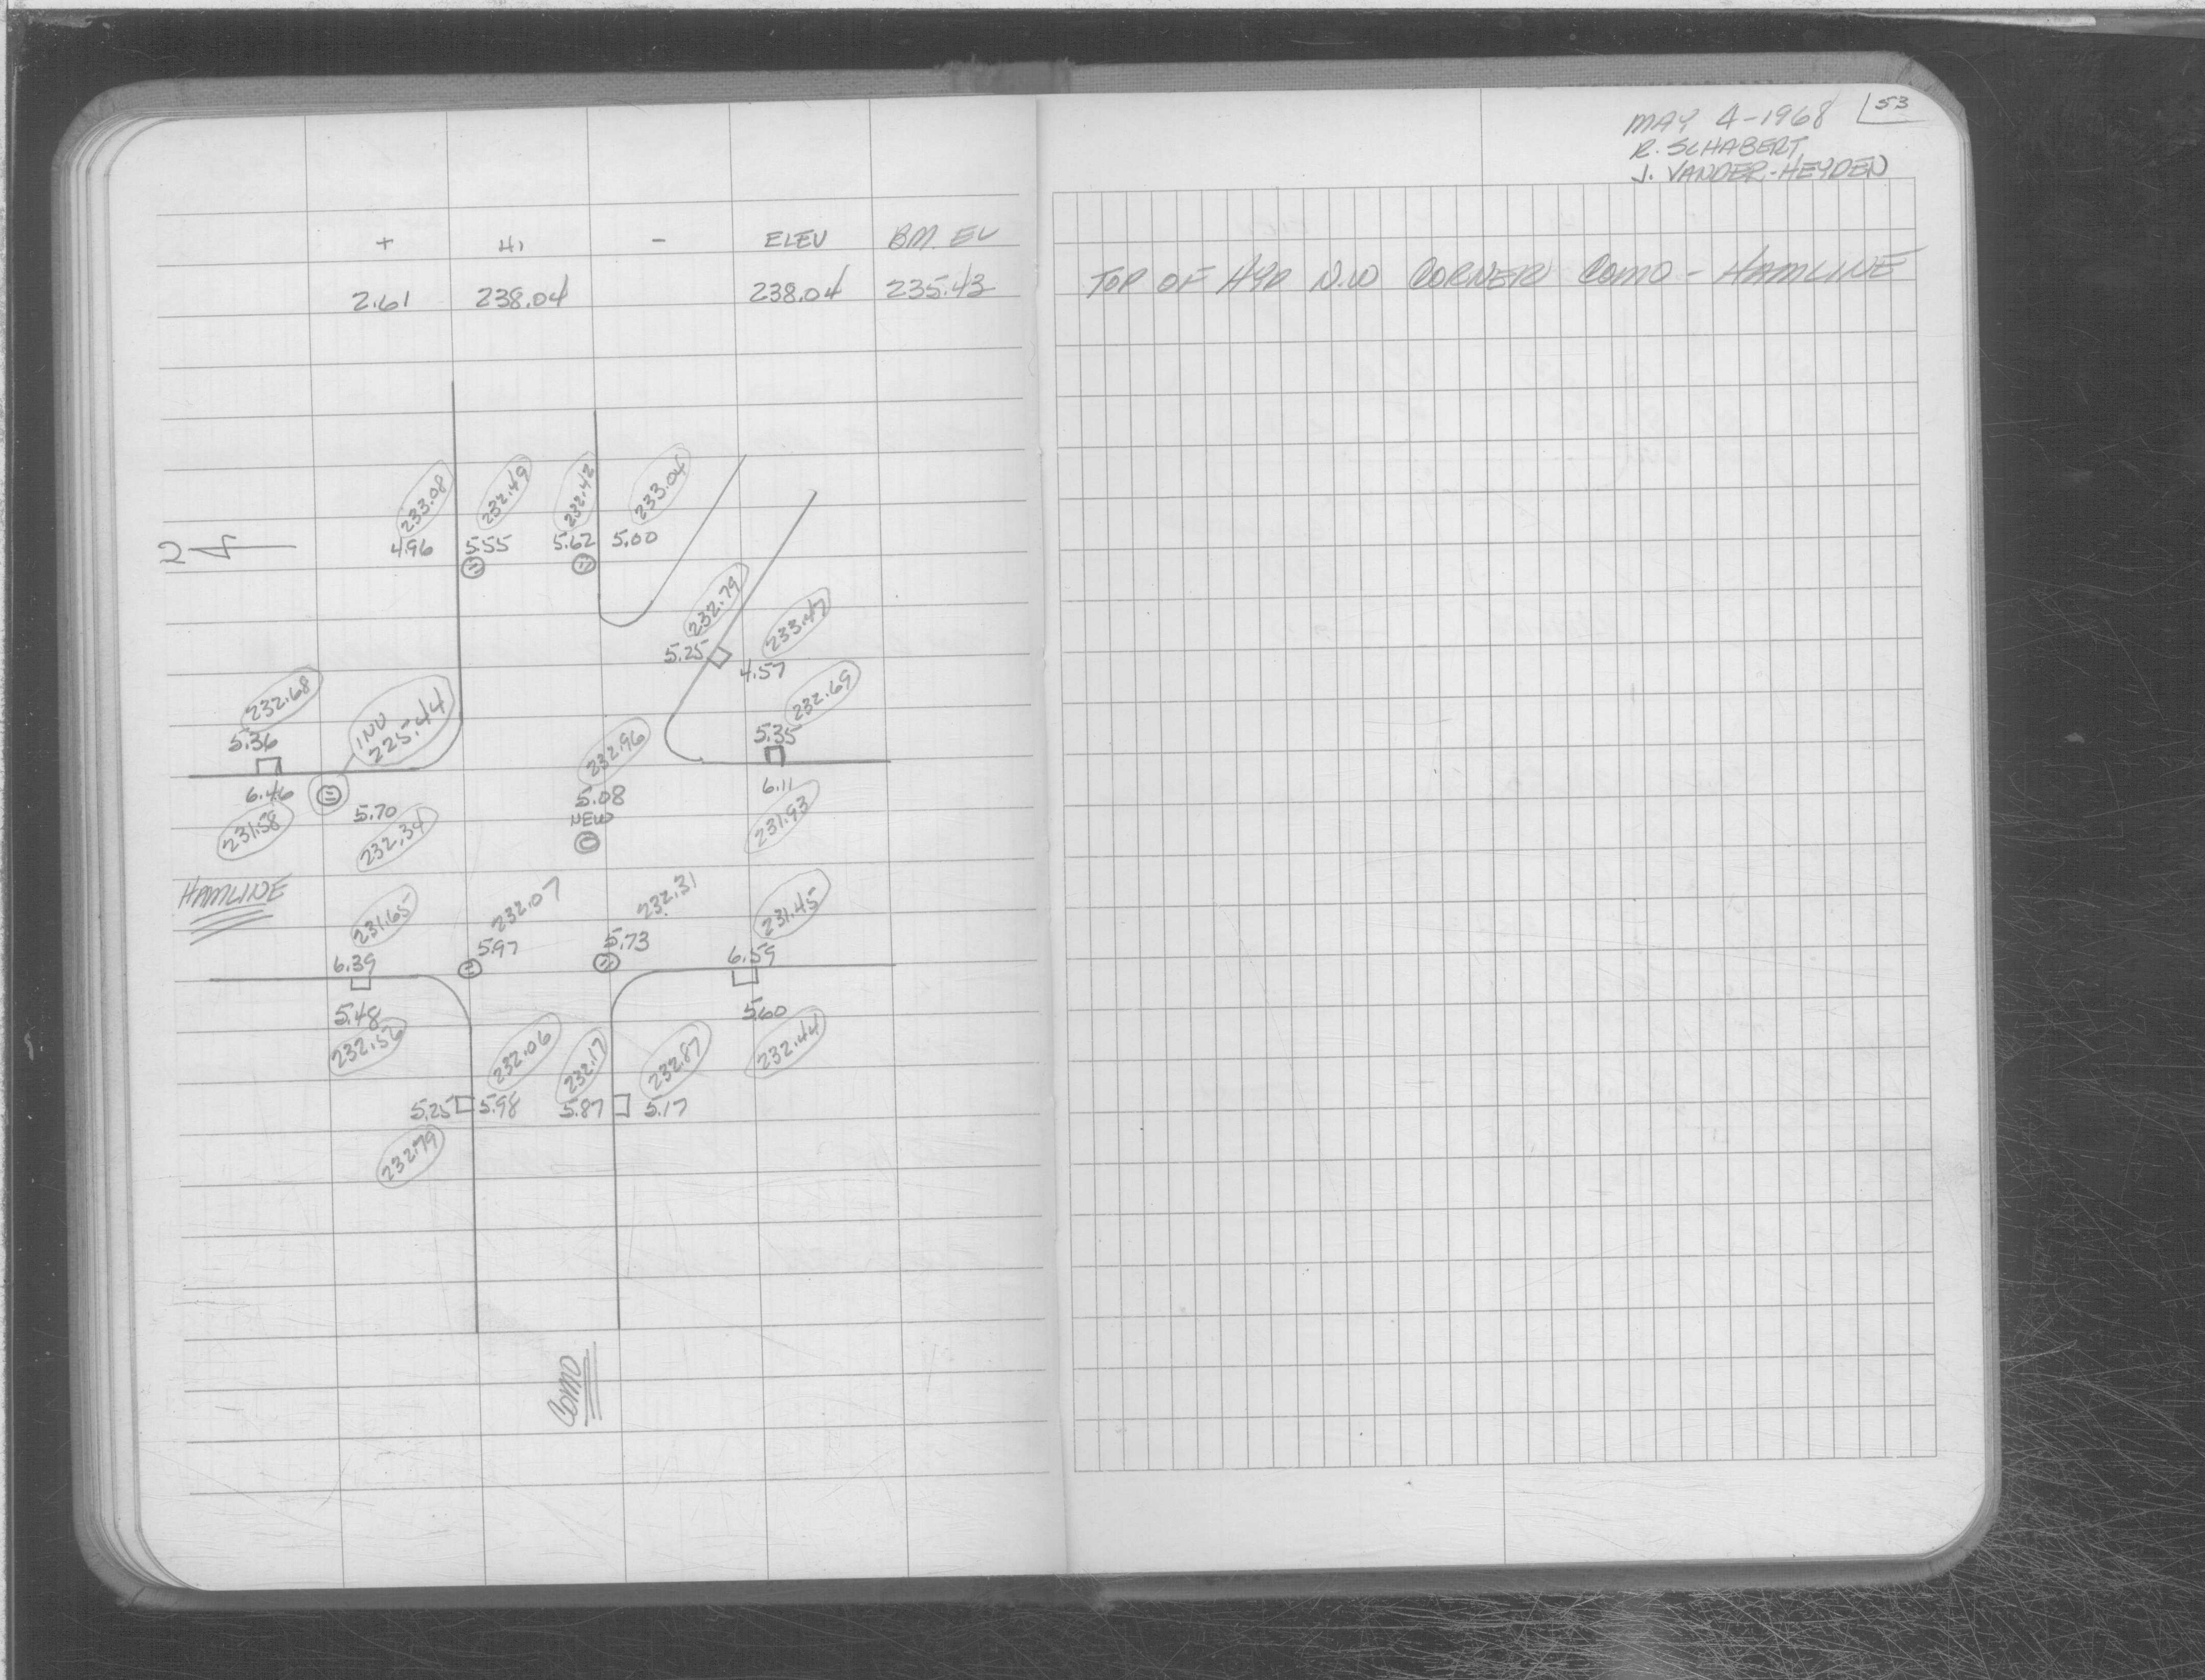 + HI - ELEV BM. EL
2.61 238.04 238.04 235.43
233.08 232.49 232.42 233.04
N 4.96 5.55 5.62 5.00
232.79 233.47
5.25 4.57
232.68 INV 225.44 232.96 232.69
5.36 5.35
6.46 5.70 5.08 6.11
NEW
231.58 232.34 231.93
HAMLINE
231.65 232.07 232.31 231.45
6.39 5.97 5.73 6.59
5.48 5.60
232.56 232.06 232.17 232.87 232.44
5.25 5.98 5.87 5.17
232.79
COMO
53
MAY 4-1968
R. SCHABERT
J. VANDER-HEYDEN
TOP OF HYD N.W CORNER COMO - HAMLINE